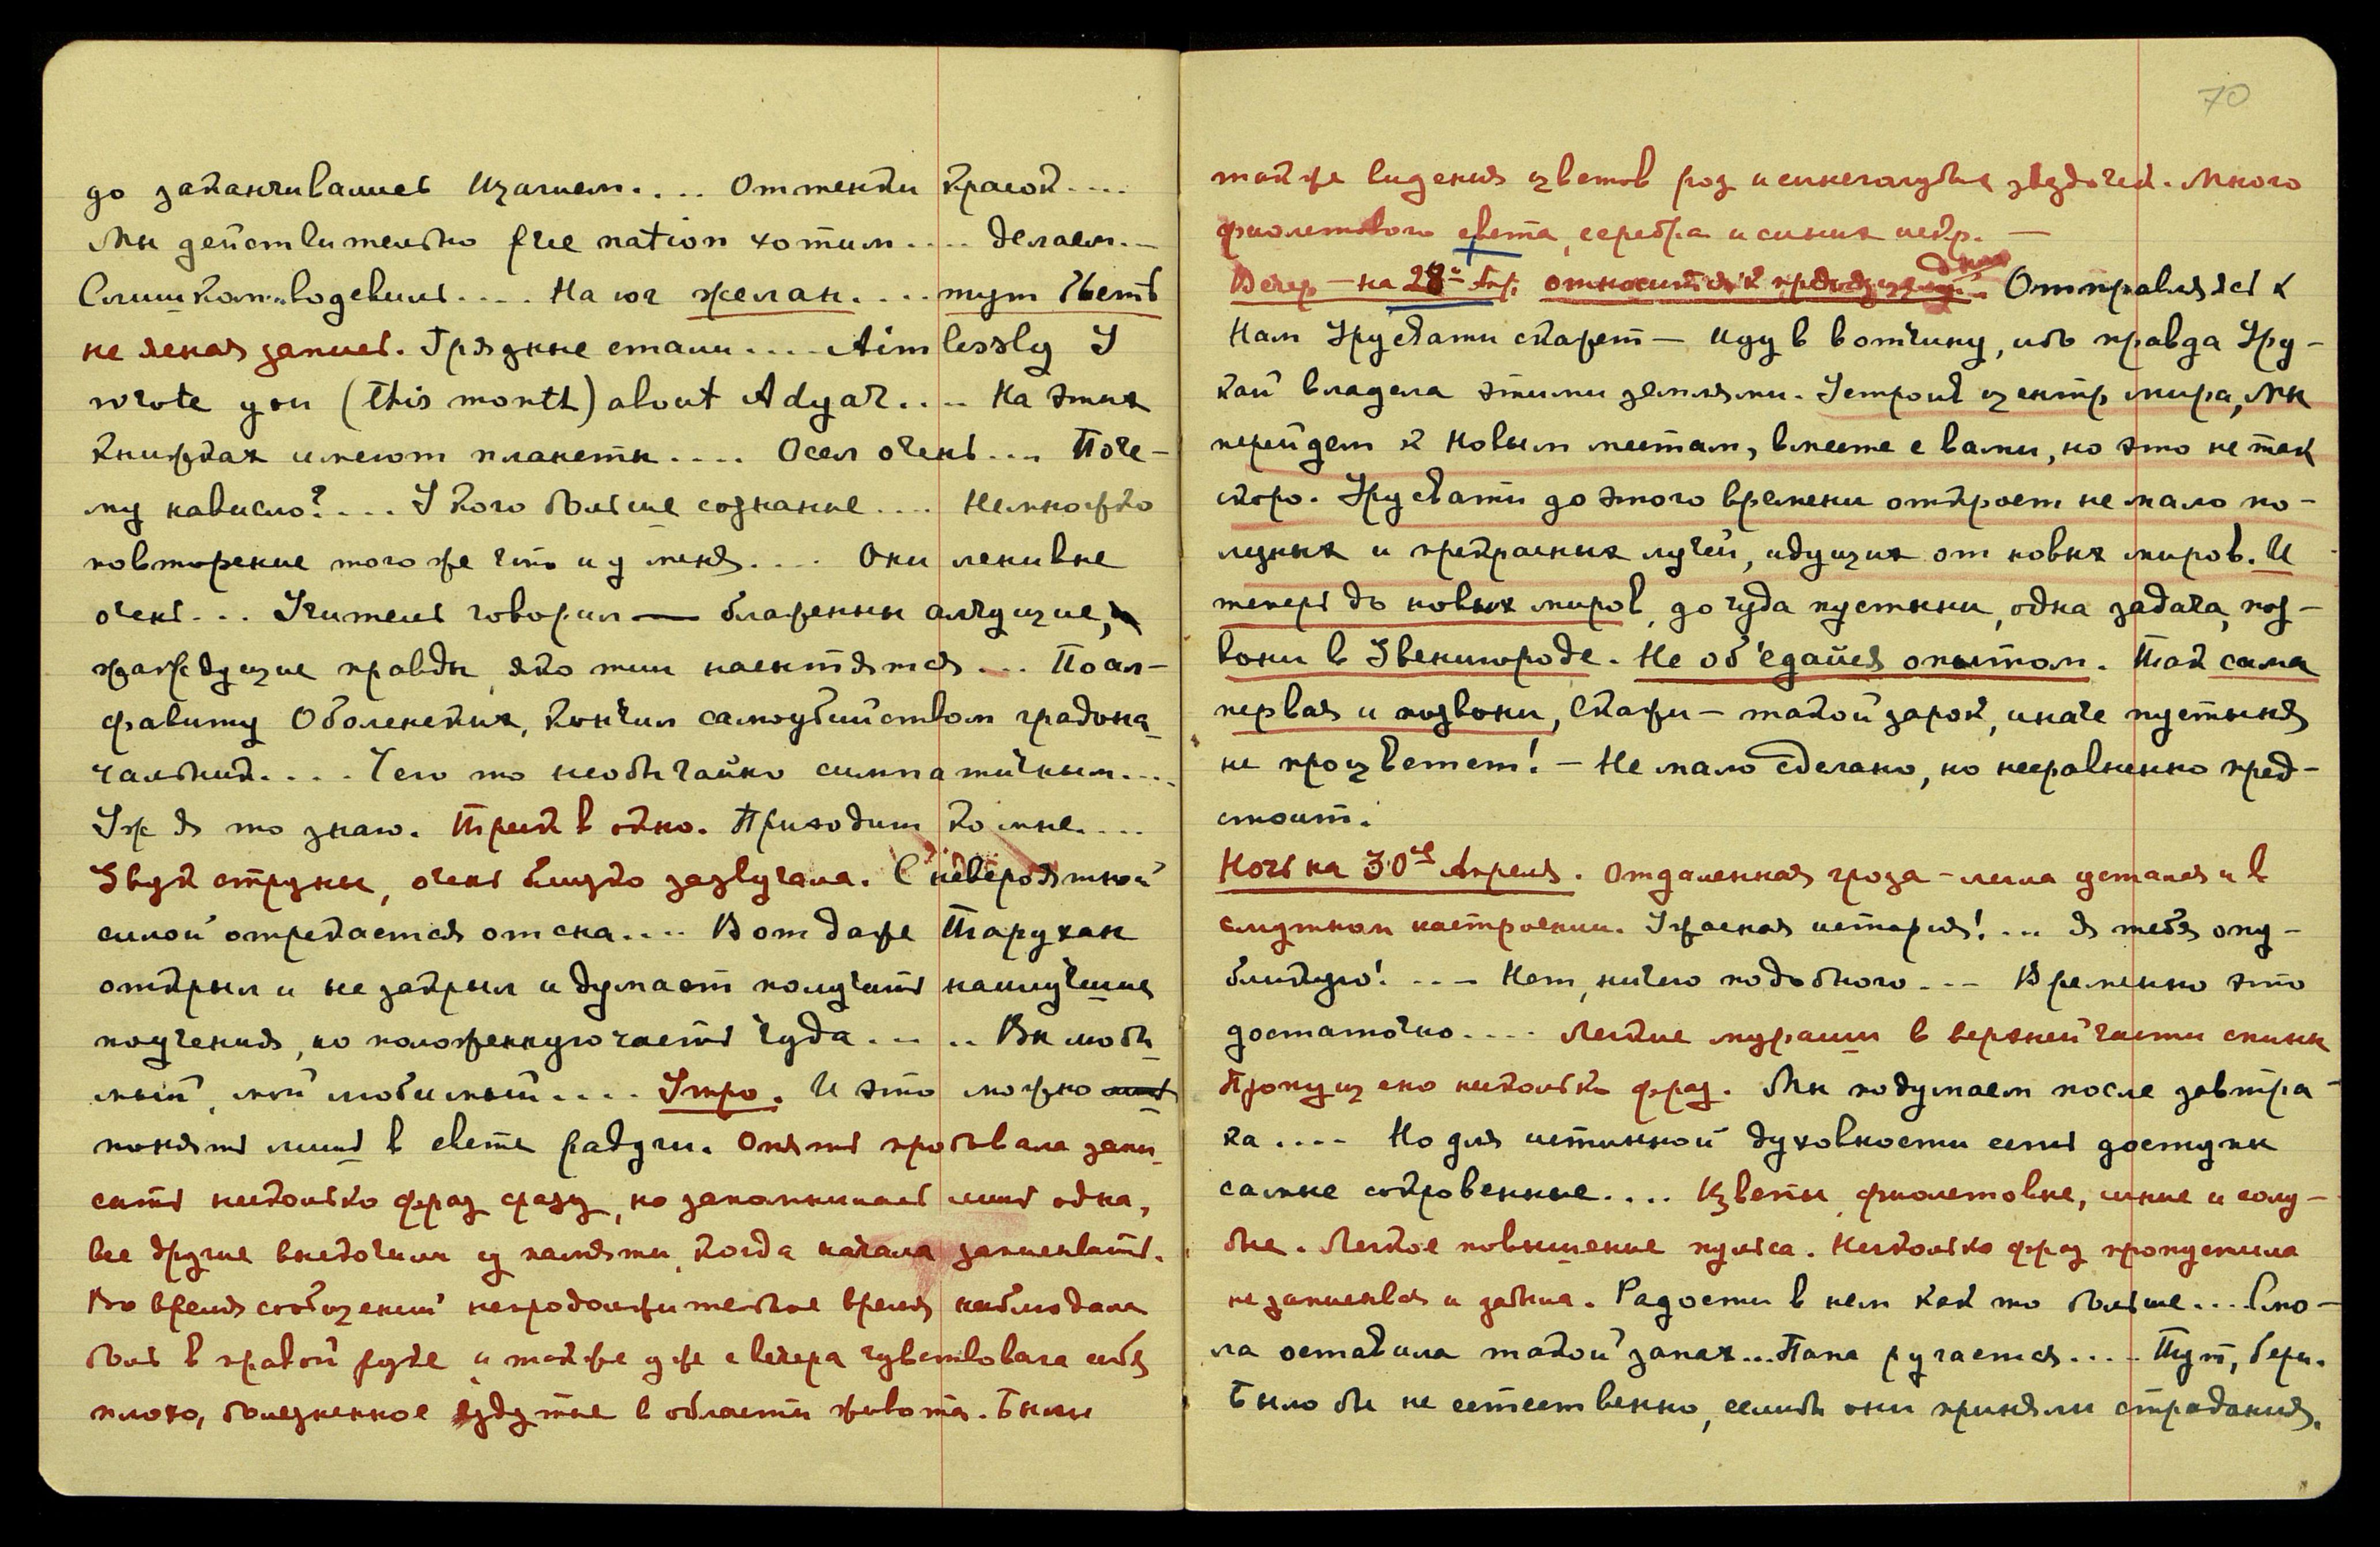 до заканчивались Изагнем.... Оттенки красок....
Мы действительно free nation хотим.... делаем.–
Слишком водевиль.... На юг желан.... тут Есть
не ясная запись. Грядные стали.... Aimlessly I
wrote you (this month) about Adyar.... На этих
книжках имеют планеты.... Осел очень.... Поче-
му нависло?.... У кого больше сознание.... Немножко
повторение того же что и у меня.... Они ленивые
очень... Учитель говорил — блаженны алчущие,
жаждущие правды, яко тии насытятся... По ал-
фавиту Оболенских, кончил самоубийством градона-
чальник.... Чего то необычайно симпатичным....
Уж я то знаю. Треск в окно. Приходит ко мне....
Звук струны, очень близко зазвучала. С невероятной
силой отрекается от сна.... Вот даже Тарухан
открыл и не закрыл и думает получить наилучшие
поучения, но положенную часть чуда..... Вы люби-
мый, мой любимый.... Утро. И это можно
понять лишь в свете радуги. Опять пробовала запи-
сать несколько фраз сразу, но запомнилась лишь одна,
все другие выскочили из памяти, когда начала записывать.
Во время сообщений непродолжительное время наблюдала
боль в правой руке и так же уже с вечера чувствовала себя
плохо, болезненное вздутие в области живота. Были
70
так же видения цветов роз и синеголубых звездочек. Много
фиолетового света, серебра и синих искр. —
Вечер – на 28ое Апр. относится к предыдущему дню. Отправляясь к
Нам Урусвати скажет — Иду в вотчину, ибо правда Уру-
кай владела этими землями. Устроив центр мира, Мы
перейдем к новым местам, вместе с вами, но это не так
скоро. Урусвати до этого времени откроет не мало по-
лезных и прекрасных лучей, идущих от новых миров. И
теперь до новых миров, до чуда пустыни, одна задача, поз-
вони в Звенигороде. Не об'едайся опытом. Так сама
первая и позвони, Скажи – такой зарок, иначе пустыня
не процветет! – Не мало сделано, но несравненно пред-
стоит.
Ночь на 30ое Апреля. Отдаленная гроза – легла усталая и в
смутном настроении. Ужасная история!... Я тебя опу-
бликую!... – Нет, ничего подобного... – Временно это
достаточно.... Легкие мураши в верхней части спины
Пропущено несколько фраз. Мы подумаем после завтра-
ка.... Но для истинной духовности есть доступы
самые сокровенные.... Цветы, фиолетовые, синие и голу-
бые. Легкое повышение пульса. Несколько фраз пропустила
не записывая и забыла. Радости в нем как то больше... Смо-
ла оставила такой запах... Папа ругается.... Тут, бери.
Было бы не естественно, если бы они приняли страдания.